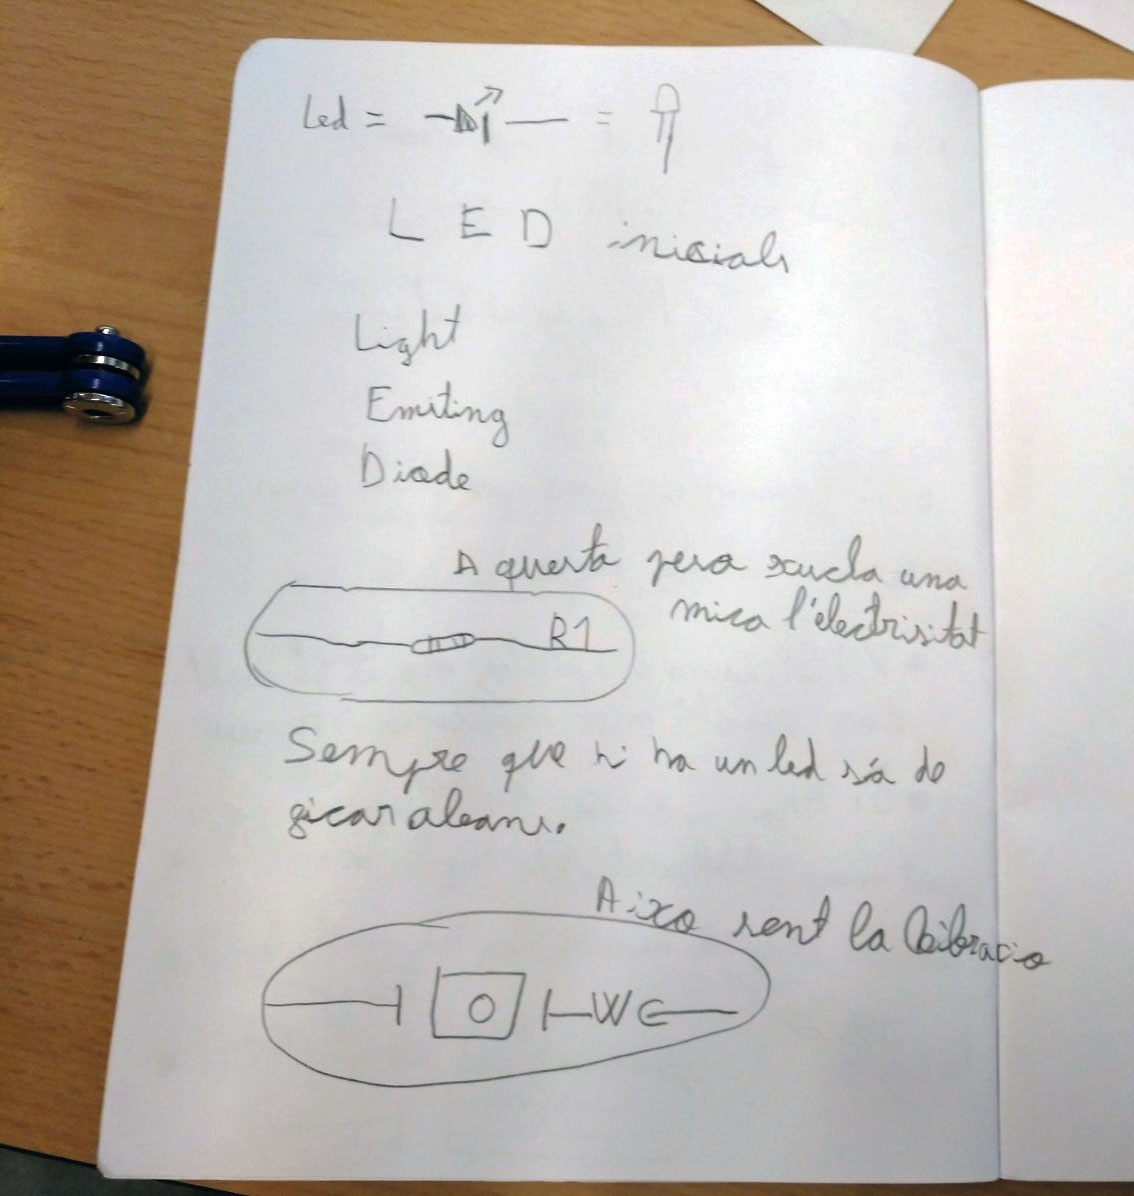 Led = =
L E D inicials
Light
Emiting
Diode
Aquesta pesa xucla una
mica l'électrisitat
R1
Sempre que hi ha un led sá de
ficar aleans.
Aixo sent la bibracio